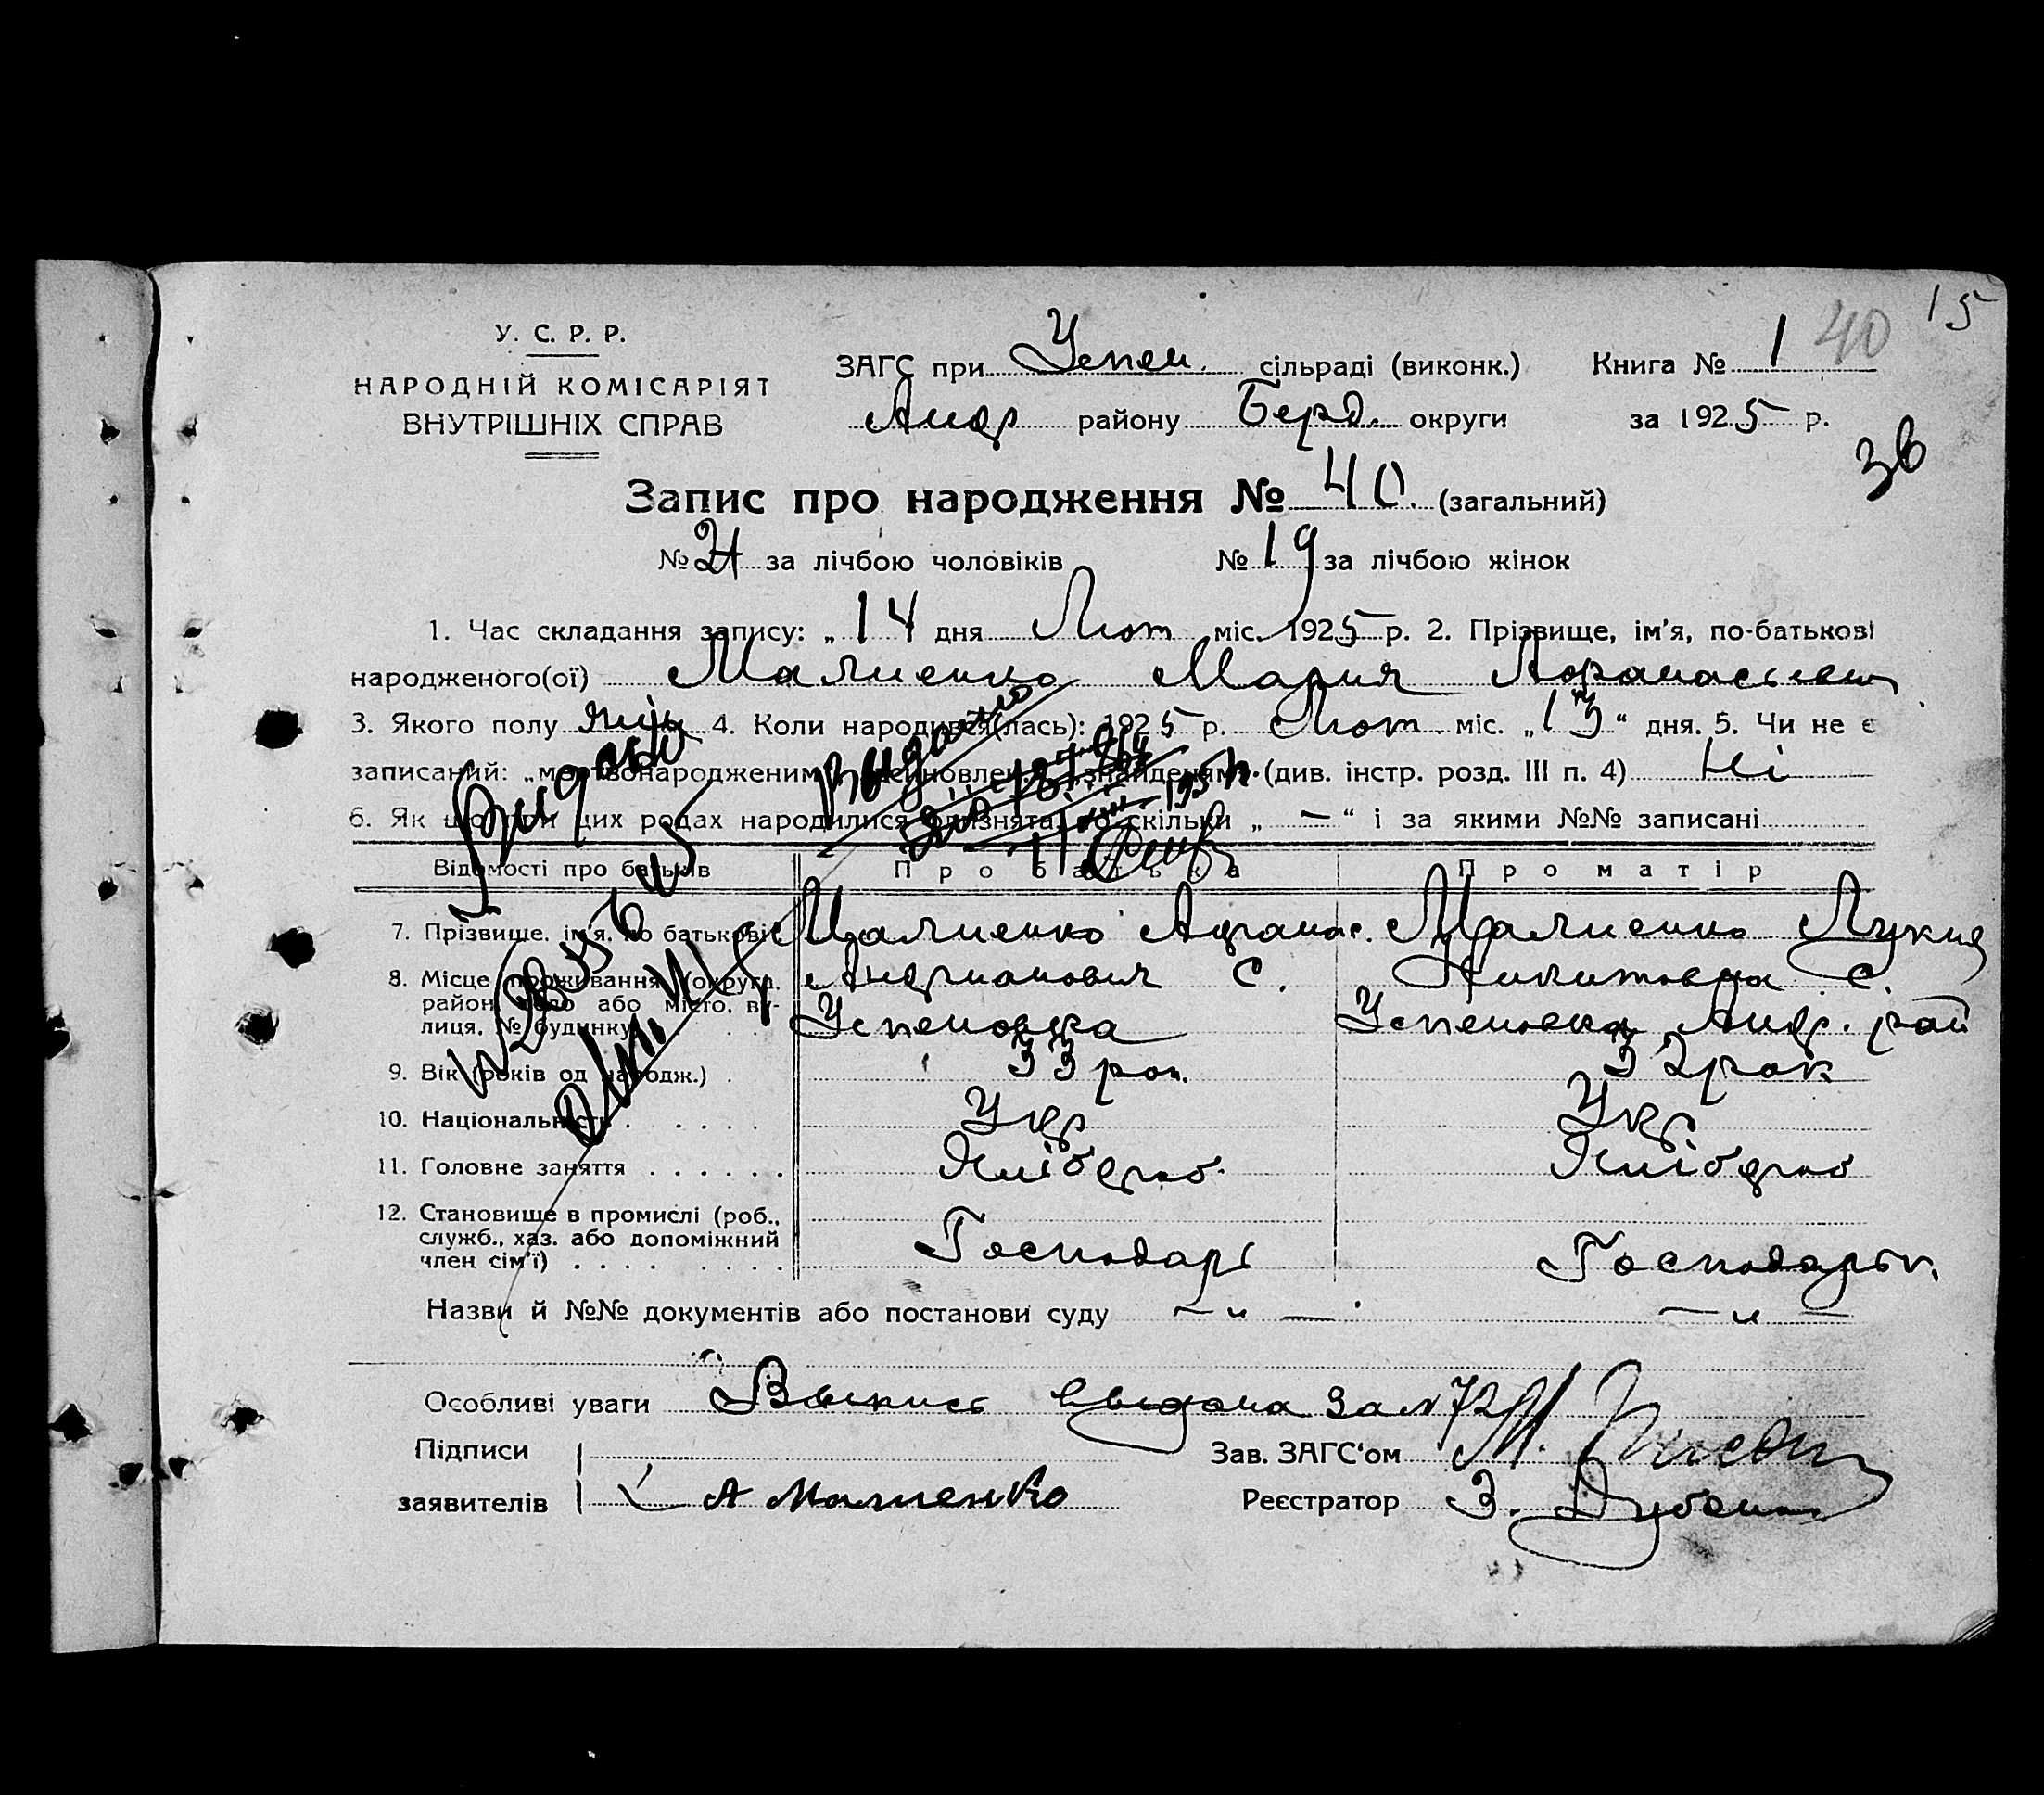 15
У. С. Р. Р.
НАРОДНІЙ КОМІСАРІЯТ
ВНУТРІШНІХ СПРАВ
ЗАГС при Успен. сільраді (виконк.) Книга № 1 40
Андр району Берд. округи за 1925 р.
Зв
Запис про народження № 40 (загальний)
№ 21 за лічбою чоловіків № 19 за лічбою жінок
1. Час складання запису: „14 дня Лют міс. 1925 р. 2. Прізвище, ім'я, по-батькові
народженого(ої) Малиенко Мария Афанасьевн
3. Якого полу жін 4. Коли народився(лась): 1925 р. Лют міс. „13“ дня. 5. Чи не є
записаний: „мертвонародженим, (див. інстр. розд. III п. 4) Ні
6. Як що при цих родах народилися близнята, то скільки „—“ і за якими №№ записані
Видано
Відомості про батьків Про батька Про матір
7. Прізвище, ім'я, по батькові Малиенко Афанас. Малиенко Лукия
8. Місце проживання (округа, Андрианович С. Никитовна С.
район, село або місто, ву-
лиця, № будинку Успеновка Успеновка Андр. рай
9. Вік (років од народж.) . 33 рок. 32 рок
10. Національність . . . . . Укр Укр
11. Головне заняття . . . . . . Хлібороб. Хлібороб
12. Становище в промислі (роб.,
служб., хаз. або допоміжний
член сім'ї) . . . . . . . . Господарь Господарьк.
Назви й №№ документів або постанови суду — „ — — „ —
Особливі уваги Выпись выдана за № 72
Підписи Зав. ЗАГС'ом М.
заявителів А Малиенко Реєстратор З. Дубен